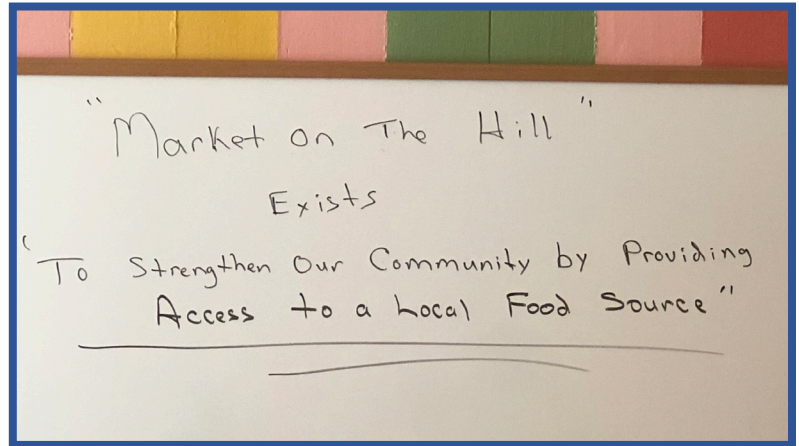 "Market on The Hill"
Exists
"To Strengthen Our Community by Providing
Access to a Local Food Source"